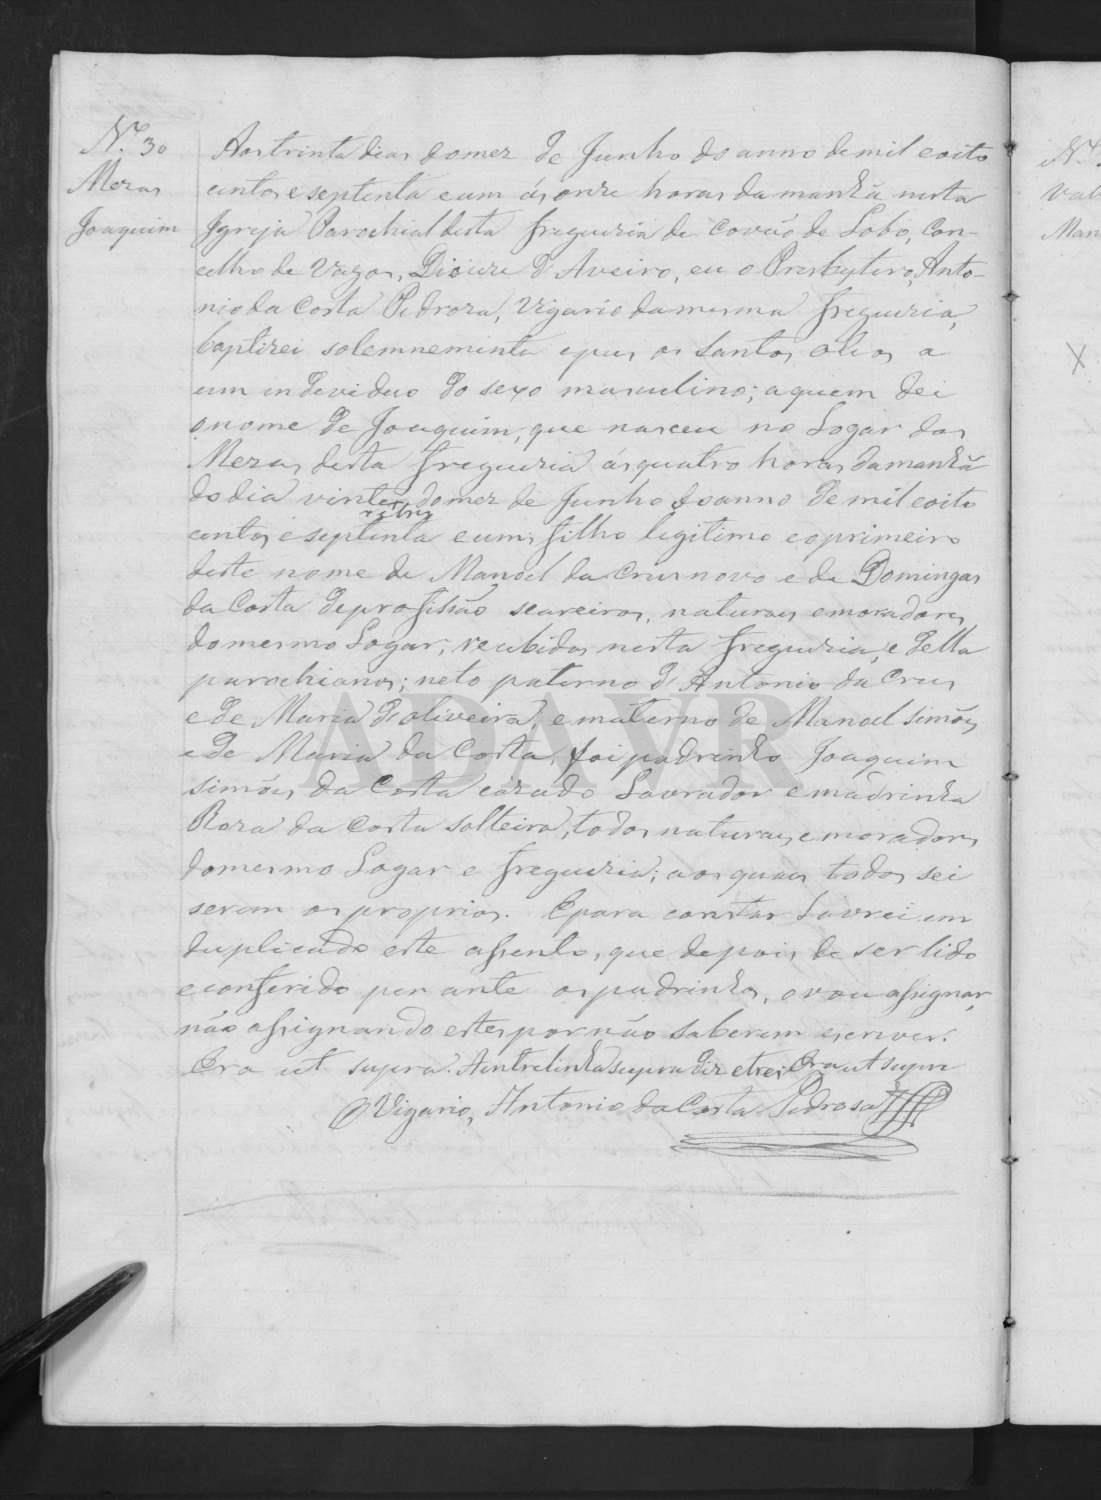 N.º 30
Mezas
Joaquim
Aos trinta dias do mez de Junho do anno de mil e oito
centos e septenta e um ás onze horas da manhã nesta
Igreja Parochial desta freguezia de Covão de Lobo, Con-
celho de Vagos, Diocese d'Aveiro, eu o Presbytero, Anto-
nio da Costa Pedroza, Vigario da mesma freguezia,
baptizei solemnemente e pus os Santos Oleos a
um endeviduo do sexo masculino; a quem dei
o nome de Joaquim, que nasceu no Logar das
Mezas desta freguezia ás quatro horas da manhã
do dia vinte e tres do mez de Junho do anno de mil e oito
centos e septenta e um, filho legitimo e o primeiro
deste nome de Manoel da Crus novo e de Domingas
da Costa de profissão seareiros, naturaes e moradores
do mesmo Logar, recebidos nesta freguezia, e della
parochianos; neto paterno d'Antonio da Crus
e de Maria d'oliveira, e materno de Manoel simões
e de Maria da Costa, foi padrinho Joaquim
simões da Costa cázado Lavrador e madrinha
Roza da Costa solteira, todos naturaes e moradores
do mesmo Logar e freguezia; aos quaes todos sei
serem os proprios. E para constar Lavrei em
duplicado este assento, que depois de ser lido
e conferido perante os padrinhos, o vou assignar,
não assignando estes por não saberem escrever.
Era ut supra. A entrelinha supra diz e tres Era ut supra
O Vigario, Antonio da Costa Pedrosa
ADAVR
N.º
Man
X